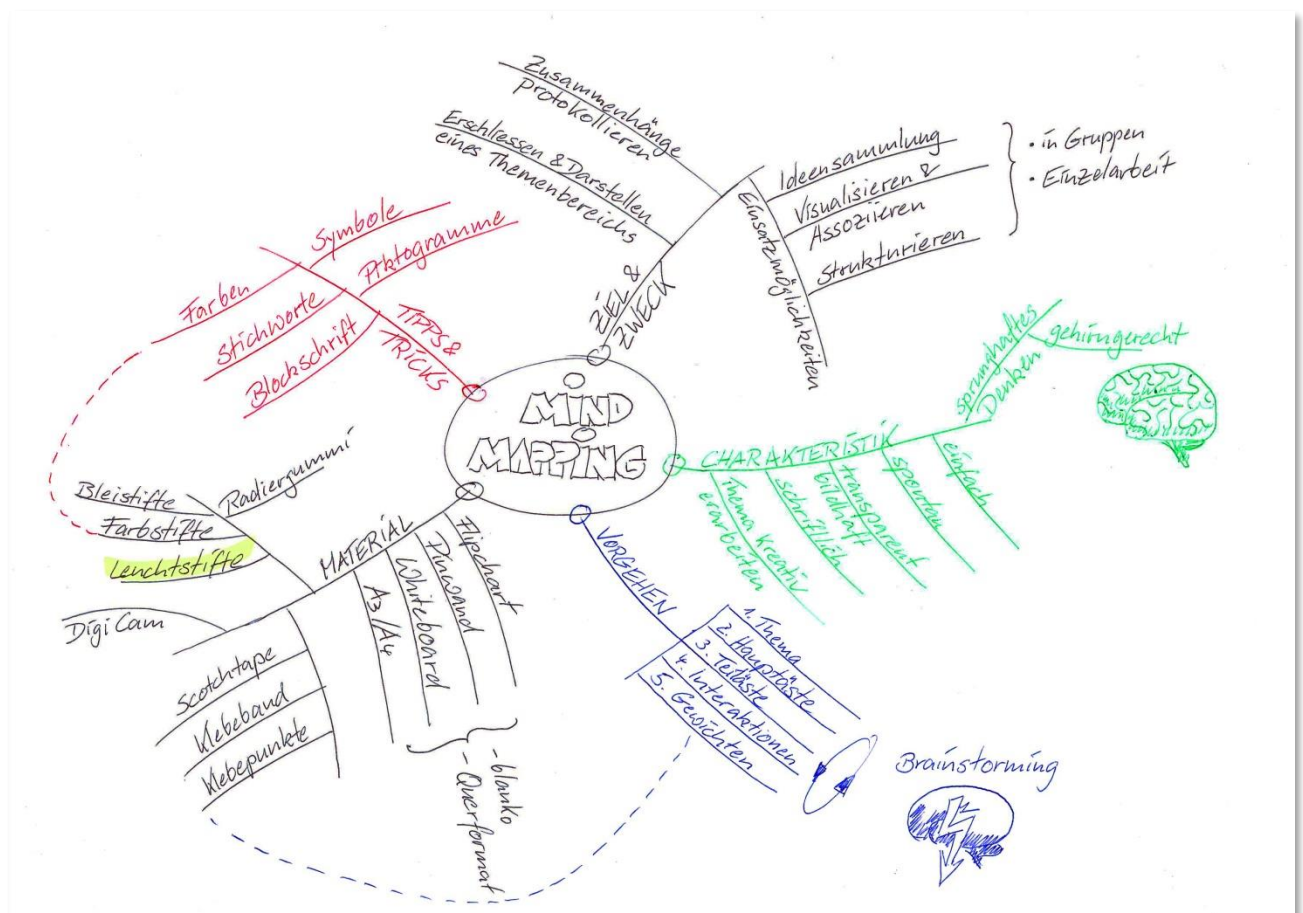 MIND
MAPPING
ZIEL &
ZWECK
Zusammenhänge
protokollieren
Erschliessen & Darstellen
eines Themenbereichs
Einsatzmöglichkeiten
Ideensammlung
Visualisieren &
Assoziieren
Strukturieren
• in Gruppen
• Einzelarbeit
CHARAKTERISTIK
sprunghaftes
Denken
gehirngerecht
einfach
spontan
transparent
bildhaft
schriftlich
Thema kreativ
erarbeiten
VORGEHEN
1. Thema
2. Hauptäste
3. Teiläste
4. Interaktionen
5. Gewichten
Brainstorming
MATERIAL
Flipchart
Pinwand
Whiteboard
A3/A4
- blanko
- Querformat
Radiergummi
Bleistifte
Farbstifte
Leuchtstifte
DigiCam
Scotchtape
Klebeband
Klebepunkte
TIPPS &
TRICKS
Symbole
Piktogramme
Farben
Stichworte
Blockschrift